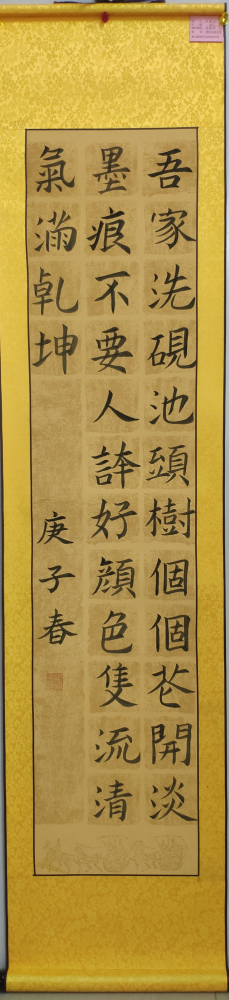 吾家洗硯池頭樹個個花開淡
墨痕不要人誇好顏色隻流清
氣滿乾坤
庚子春